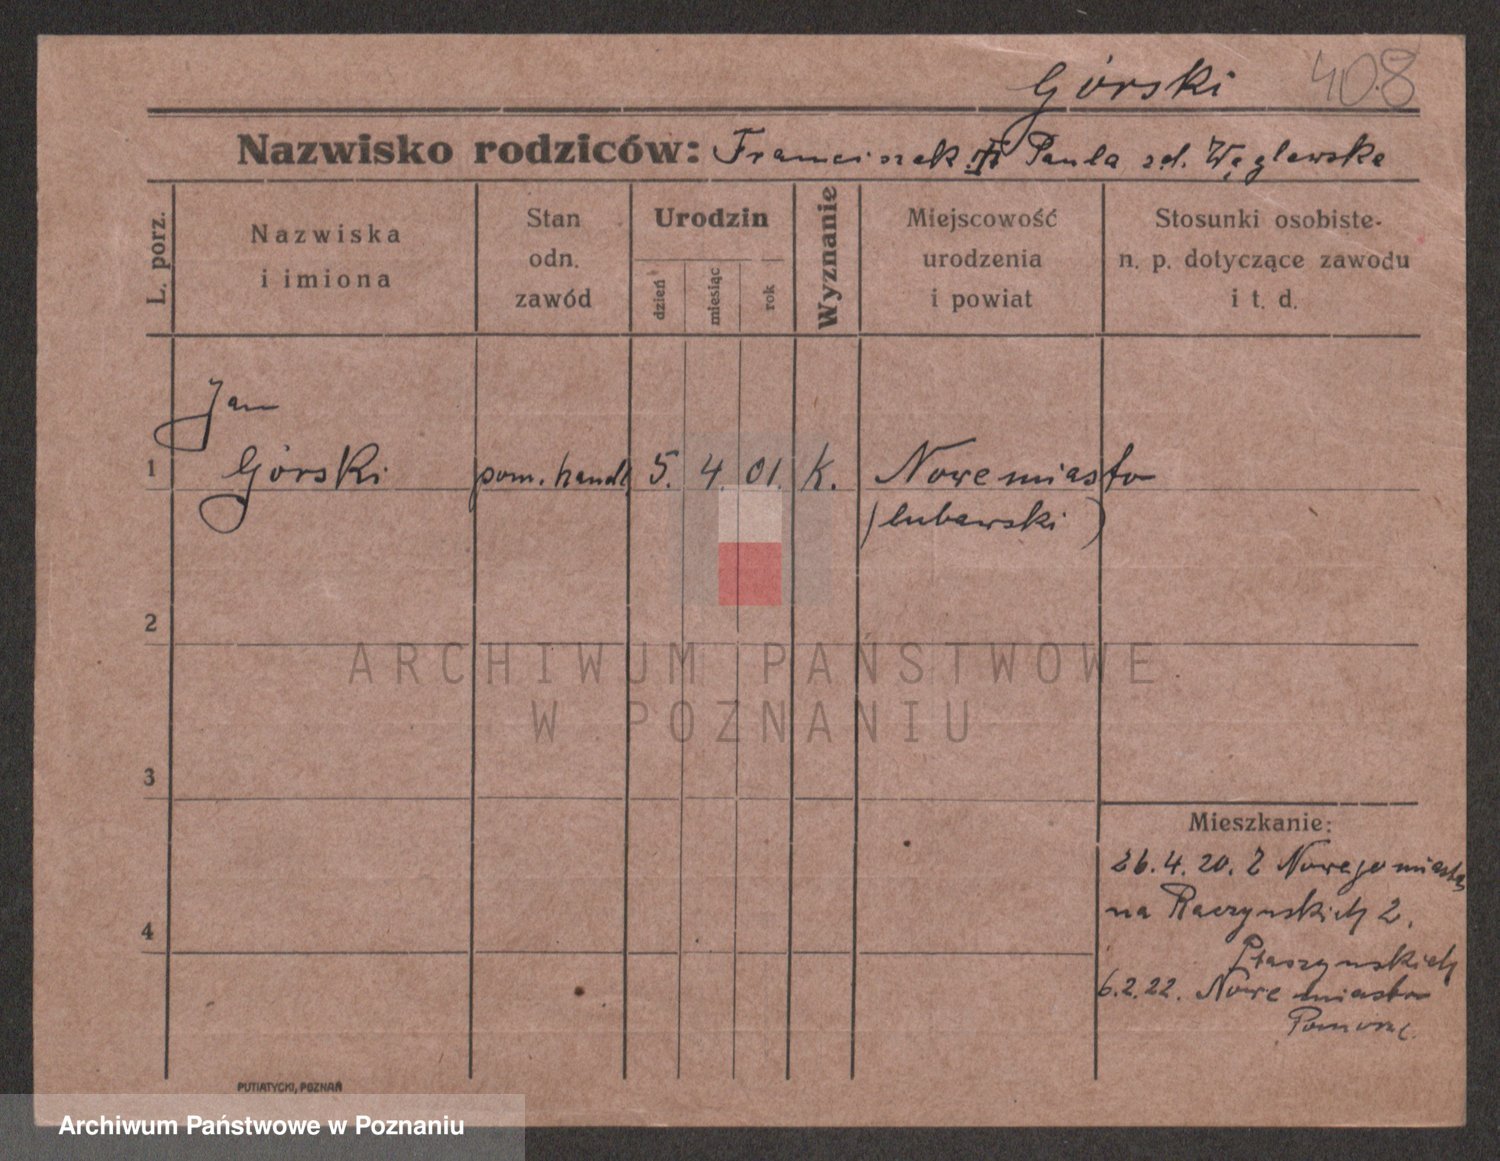 Górski 408
Nazwisko rodziców: Franciszek i Paula zd. Węglewska
L. porz.
Nazwiska
i imiona
Stan
odn.
zawód
Urodzin
dzień
miesiąc
rok
Wyznanie
Miejscowość
urodzenia
i powiat
Stosunki osobiste-
n. p. dotyczące zawodu
i t. d.
Jan
1 Górski pom. handl. 5. 4 01. K. Nowe miasto
(lubawski)
2
ARCHIWUM PAŃSTWOWE
W POZNANIU
3
Mieszkanie:
26.4.20. Z Nowego miasta
na Raczyńskich 2.
4
6.2.22. Nowe miasto
PUTIATYCKI, POZNAŃ
Archiwum Państwowe w Poznaniu